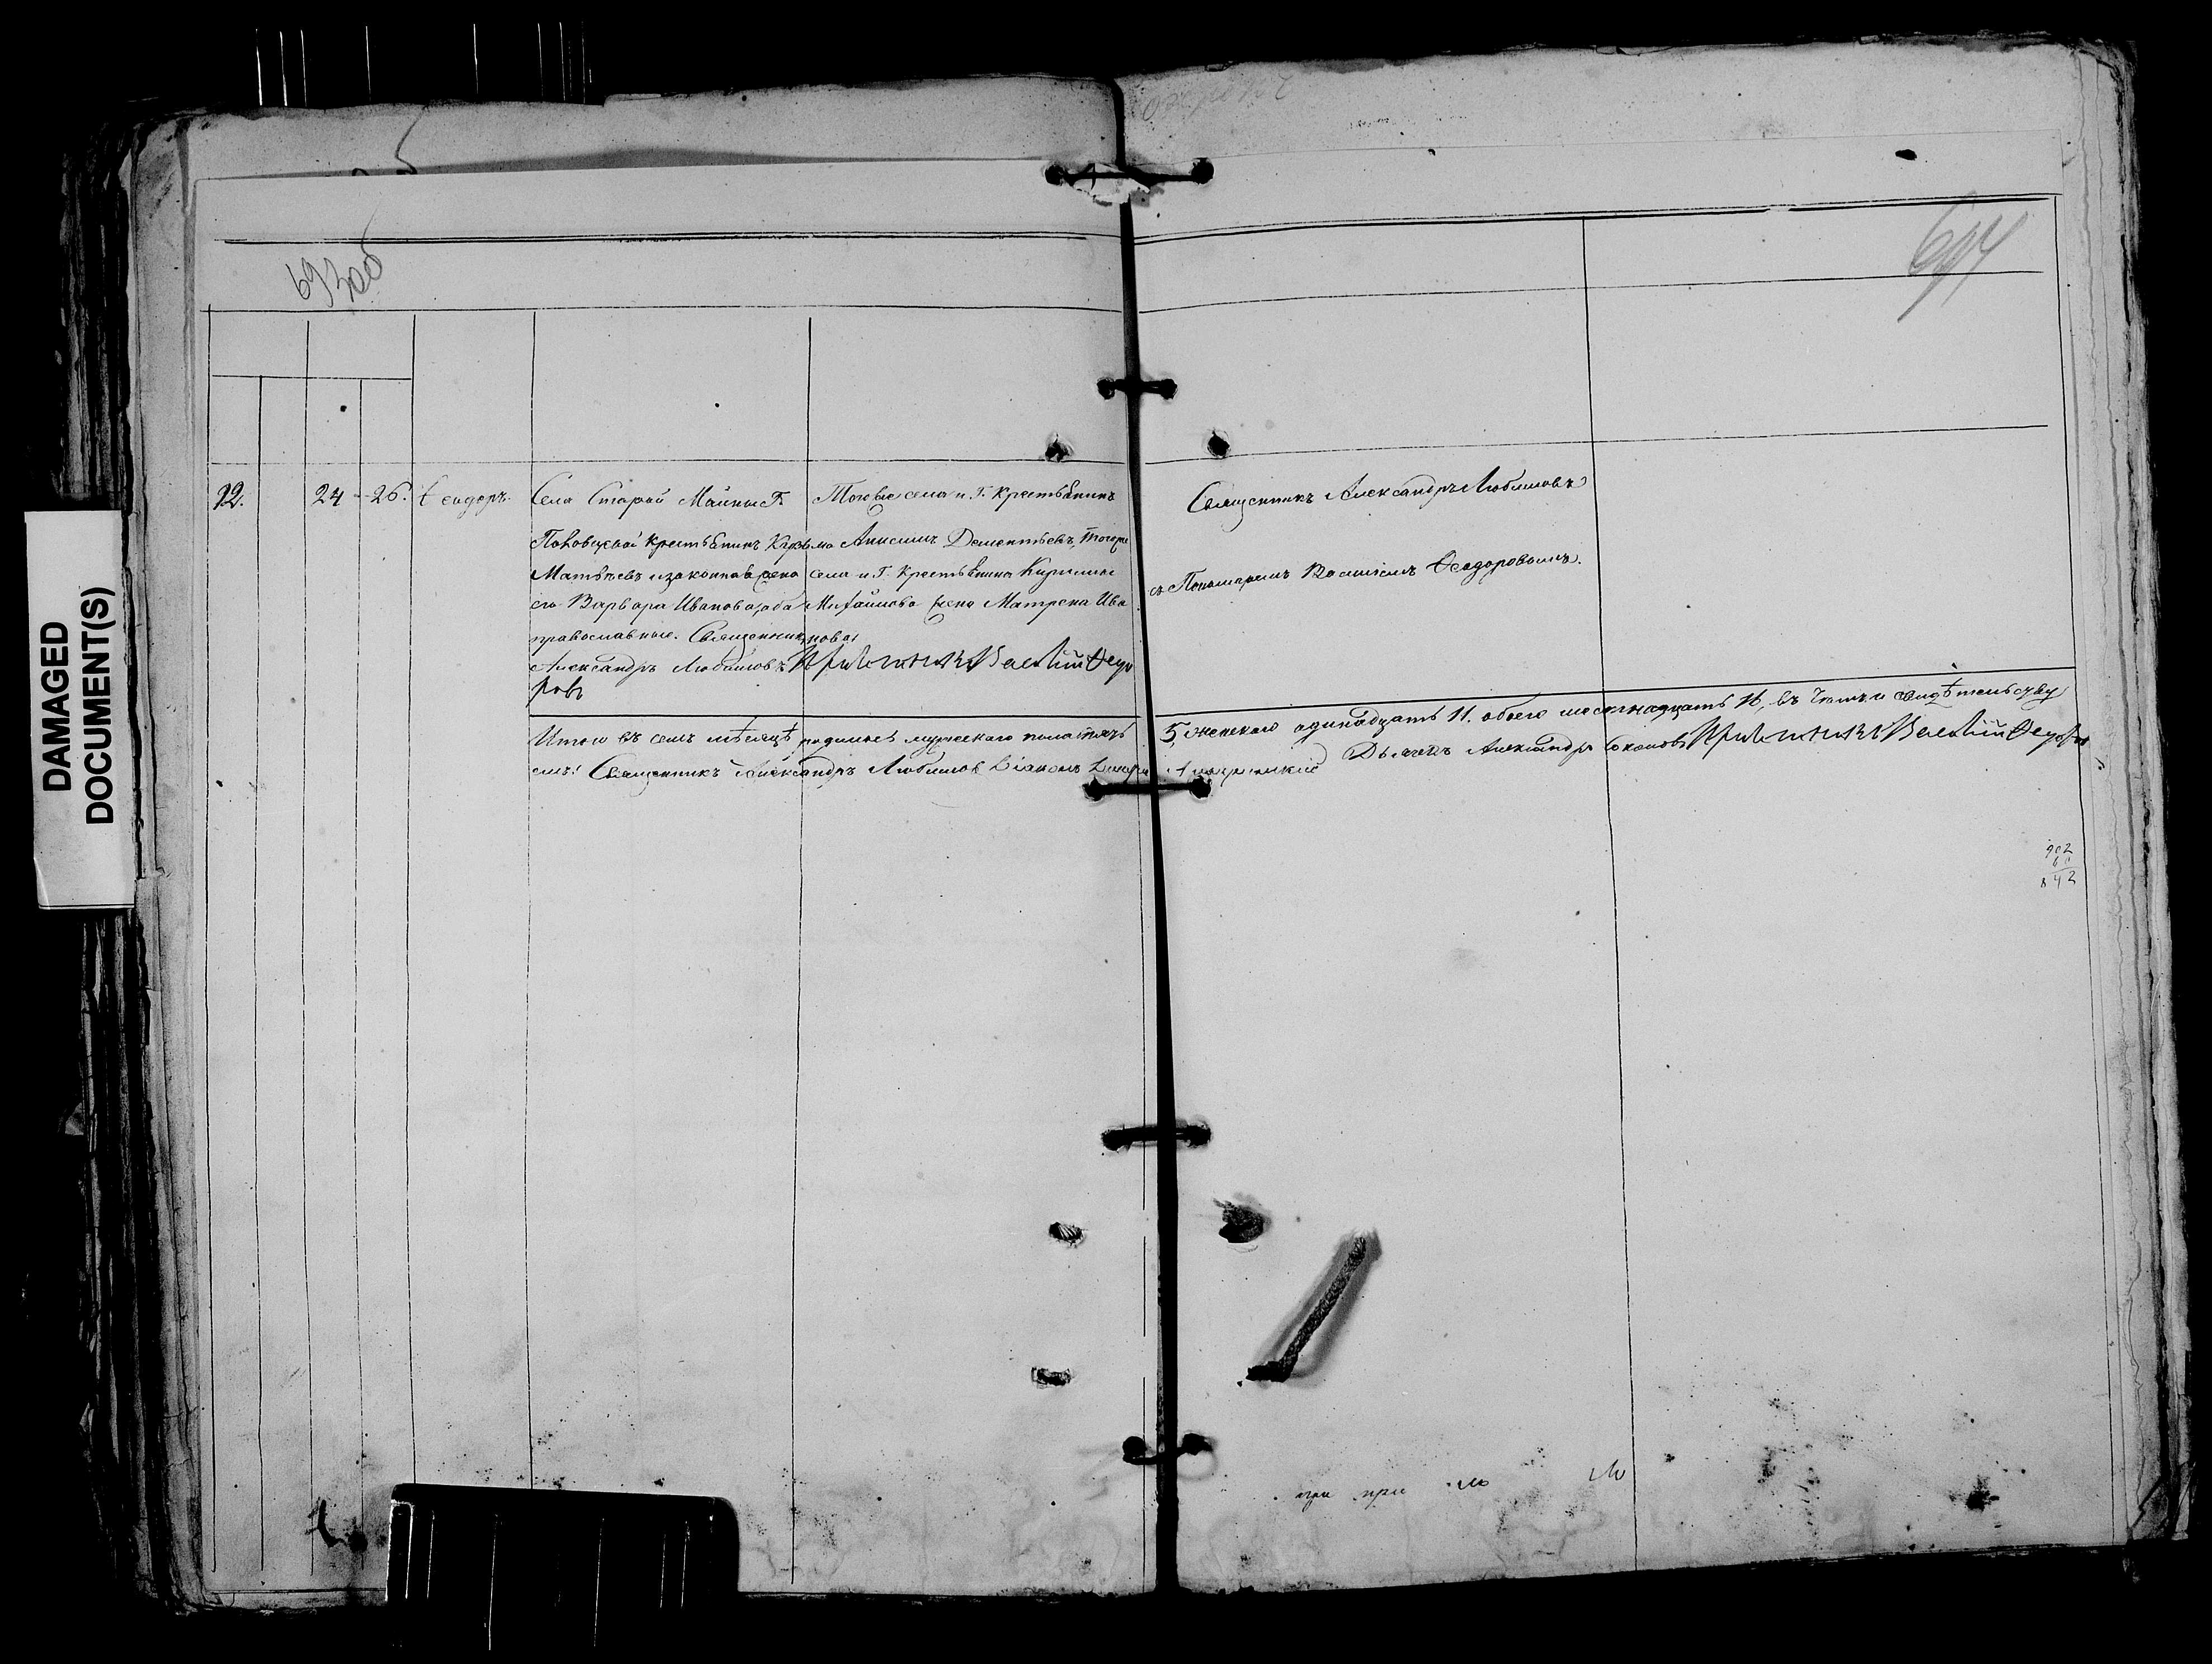 DAMAGED
DOCUMENT(S)
693об
694
12. 24 26. Ѳеодоръ
Села Старой Майны Г.
Поповцевой крестьянинъ Кузьма
Матвѣевъ и законная жена
его Варвара Иванова, оба
православные. Священникъ
Александръ Любимовъ
Тогоже села и Г. крестьянинъ
Анисимъ Дементьевъ, тогоже
села и Г. крестьянина Кириллы
Михайлова жена Матрена Ива
нова.
Василій Ѳедо
ровъ
Священникъ Александръ Любимовъ
съ Пономаремъ Василіемъ Ѳеодоровымъ.
Итого въ семъ мѣсяцѣ родилось мужескаго пола пять 5, женскаго одинадцать 11. обоего шестнадцать 16, въ чемъ и свидѣтельству
емъ: Священникъ Александръ Любимовъ Діаконъ Дьячекъ Александръ Василій Ѳедоровъ
902
60
842
при при